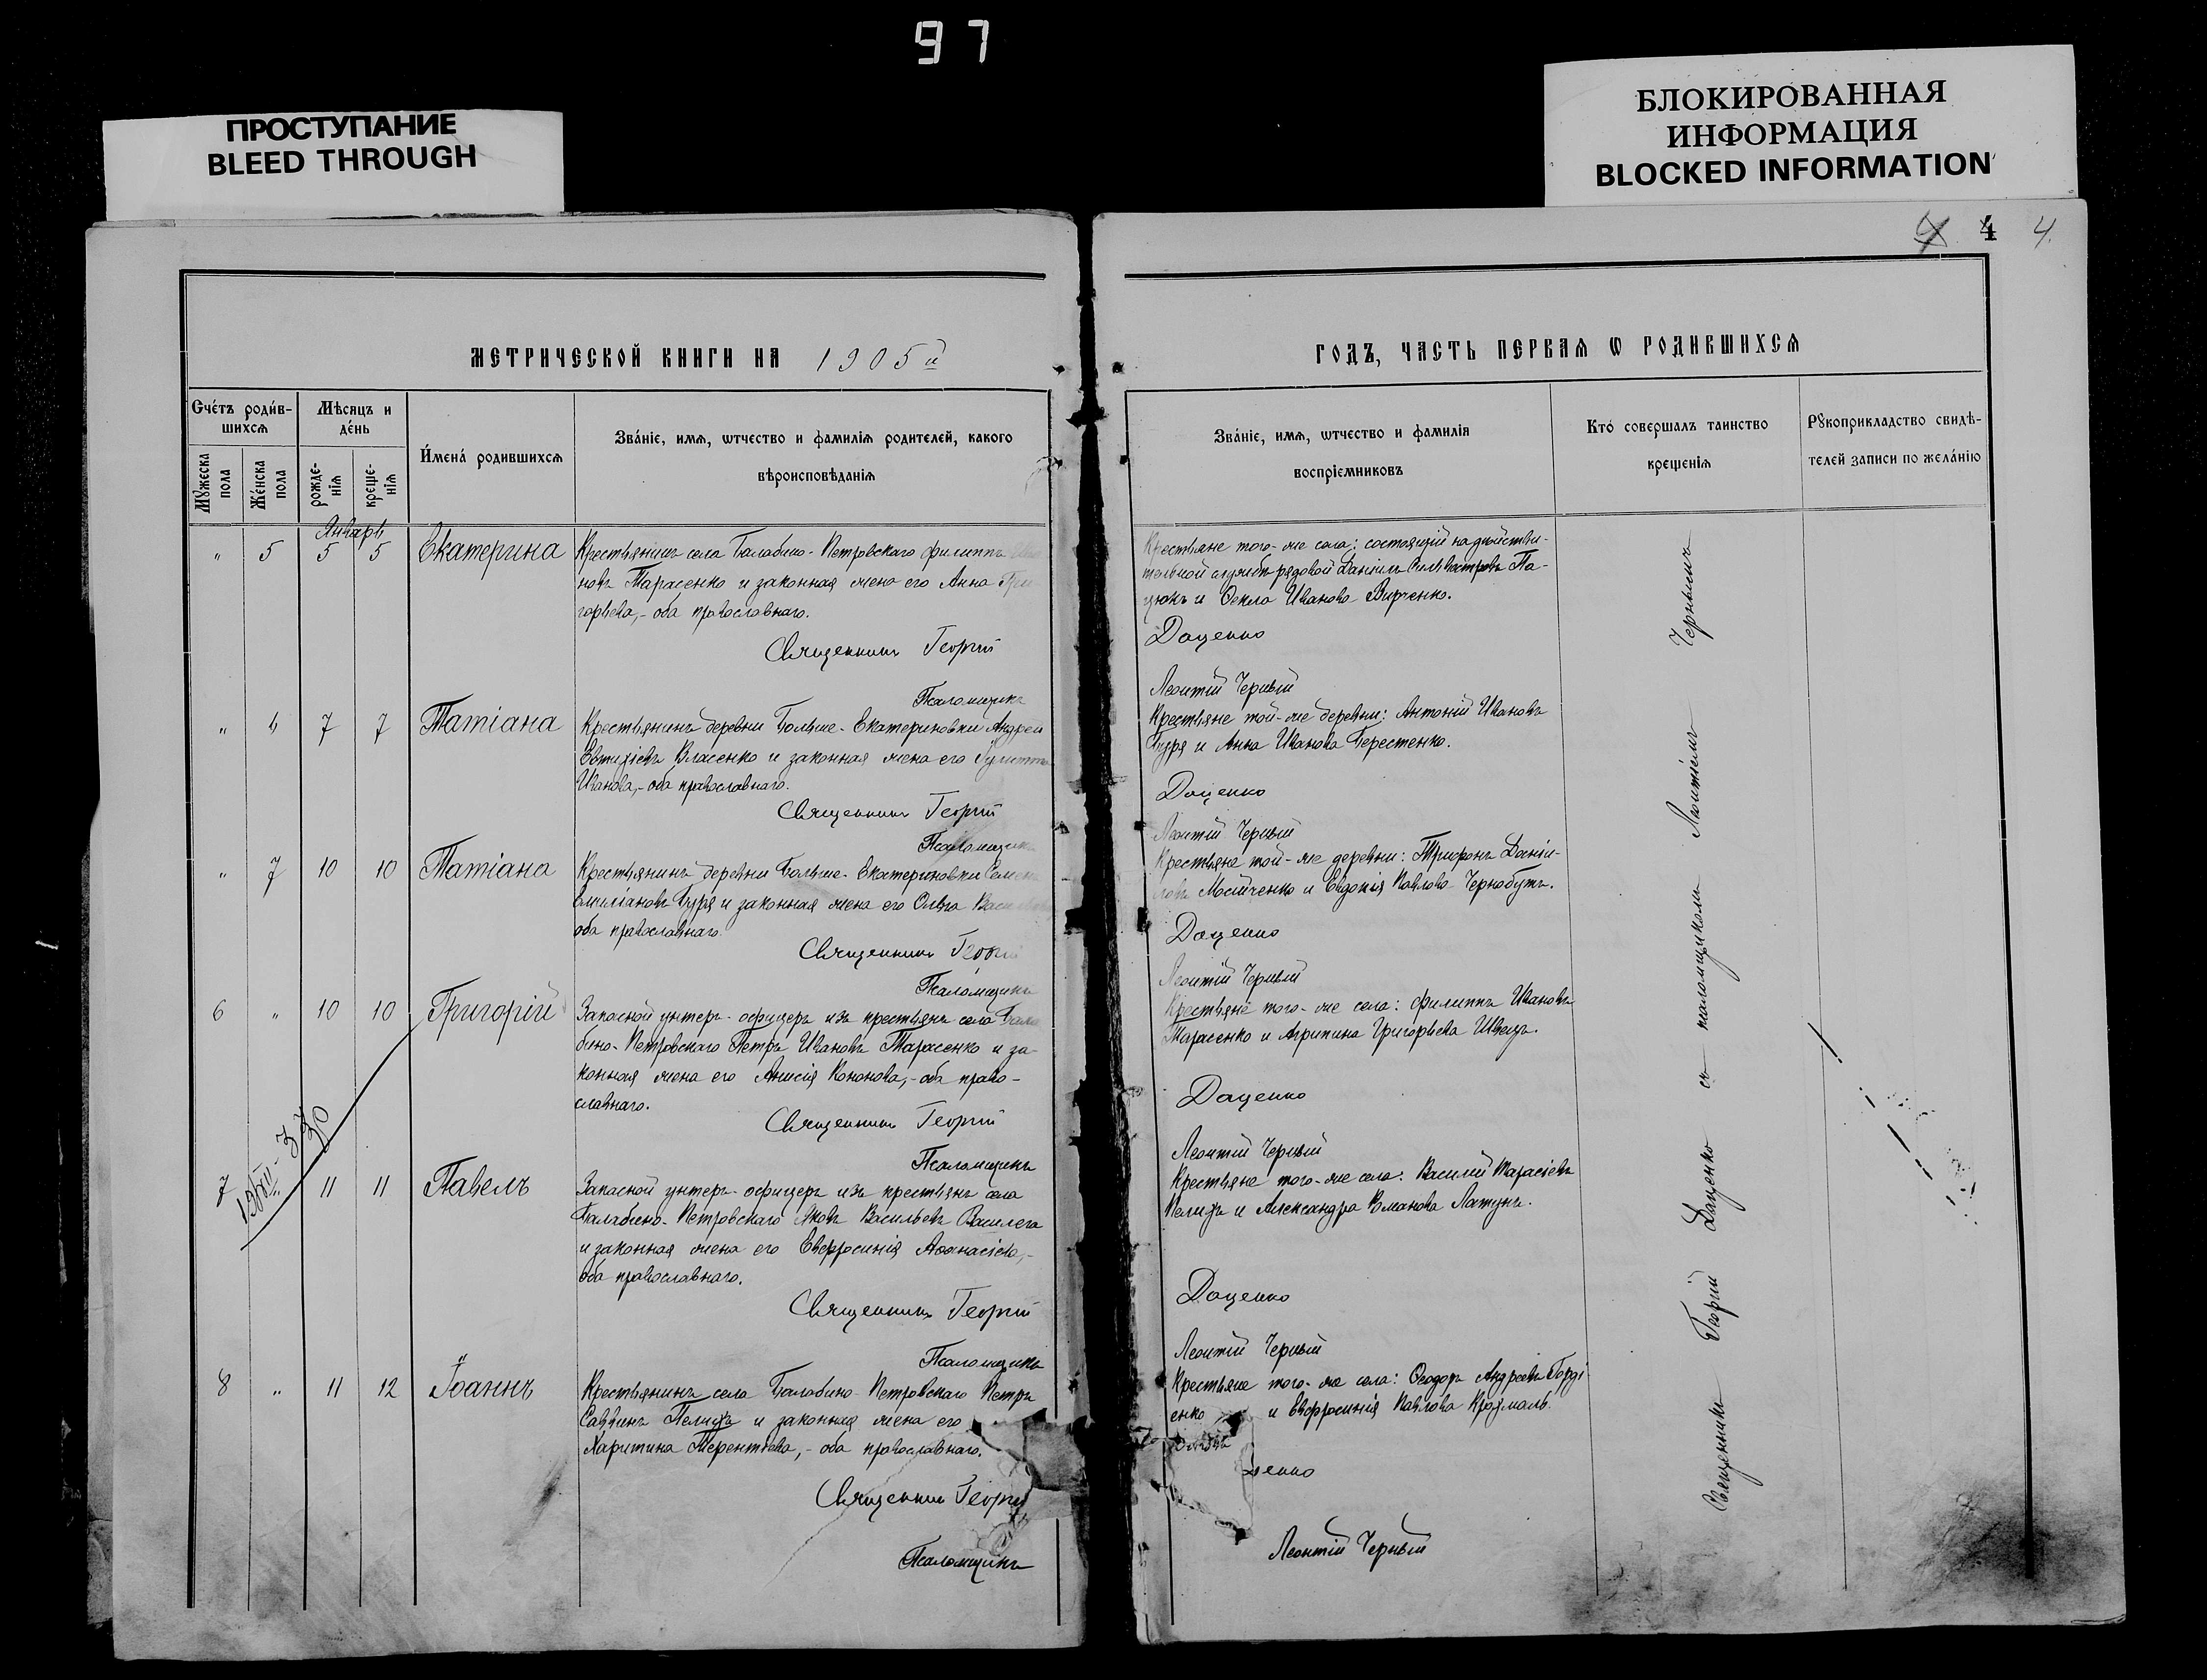 97
ПРОСТУПАНИЕ
BLEED THROUGH
БЛОКИРОВАННАЯ
ИНФОРМАЦИЯ
BLOCKED INFORMATION
4 4.
МЕТРИЧЕСКОЙ КНИГИ НА 1905й
Счетъ родив-
шихсѧ
Мѣсяцъ и
день
Имена родившихсѧ
Званіе, имѧ, ѿтчество и фамиліѧ родителей, какого
вѣроисповѣданіѧ
Мꙋжеска пола
Женска пола
рожде-
ніѧ
креще-
ніѧ
Январь
„ 5 5 5 Екатерина Крестьянинъ села Балабино-Петровскаго Филиппъ Ива
новъ Тарасенко и законная жена его Анна Гри
горьева,- оба православнаго.
Священникъ Георгій
Псаломщикъ
„ 7 7 Татіана Крестьянинъ деревни Больше-Екатериновки Андрей
Евтихіевъ Власенко и законная жена его
Иванова,- оба православнаго.
Священникъ Георгій
Псаломщикъ
„ 7 10 10 Татіана Крестьянинъ деревни Больше-Екатериновки
Емиліановъ Буря и законная жена его Ольга
оба православнаго.
Священникъ Георгій
Псаломщикъ
6 „ 10 10 Григорій Запасной унтеръ-офицеръ изъ крестьянъ села Бала
бино-Петровскаго Петръ Ивановъ Тарасенко и за-
конная жена его Анисія Кононова,- оба право-
славнаго.
Священникъ Георгій
Псаломщикъ
7 „ 11 11 Павелъ Запасной унтеръ-офицеръ изъ крестьянъ села
Балабино-Петровскаго Яковъ Васильевъ Василега
и законная жена его Евфросинія Аѳанасіева,-
оба православнаго.
Священникъ Георгій
Псаломщикъ
8 „ 11 12 Іоаннъ Крестьянинъ села Балабино-Петровскаго Петръ
Саввинъ Пелихъ и законная жена его
Харитина Терентьева,- оба православнаго.
Священникъ Георгій
Псаломщикъ
ГОДЪ, ЧАСТЬ ПЕРВАѦ Ѡ РОДИВШИХСѦ
Званіе, имѧ, ѿтчество и фамиліѧ
воспріемниковъ
Кто совершалъ таинство
крещеніѧ
Рꙋкоприкладство свидѣ-
телей записи по желанію
Крестьяне того-же села: состоящій на дѣйстви-
тельной службѣ рядовой Даніилъ Сильвестровъ Па-
цюкъ и Ѳекла Иванова Вирченко.
Даценко
Леонтій Черный
Крестьяне той-же деревни: Антоній Ивановъ
Буря и Анна Иванова Берестенко.
Даценко
Леонтій Черный
Крестьяне той-же деревни: Трифонъ Даніи-
ловъ и Евдокія Павлова Чернобутъ.
Даценко
Леонтій Черный
Крестьяне того-же села: Филиппъ Ивановъ
Тарасенко и Агрипина Григорьева Швецъ.
Даценко
Леонтій Черный
Крестьяне того-же села: Василій Тарасіевъ
Пелихъ и Александра Романова Латунъ.
Даценко
Леонтій Черный
Крестьяне того-же села: Ѳеодоръ Андреевъ Горді
енко и Евфросинія Павлова
ценко
Леонтій Черный
Священникъ Георгій Даценко съ псаломщикомъ Леонтіемъ Чернымъ